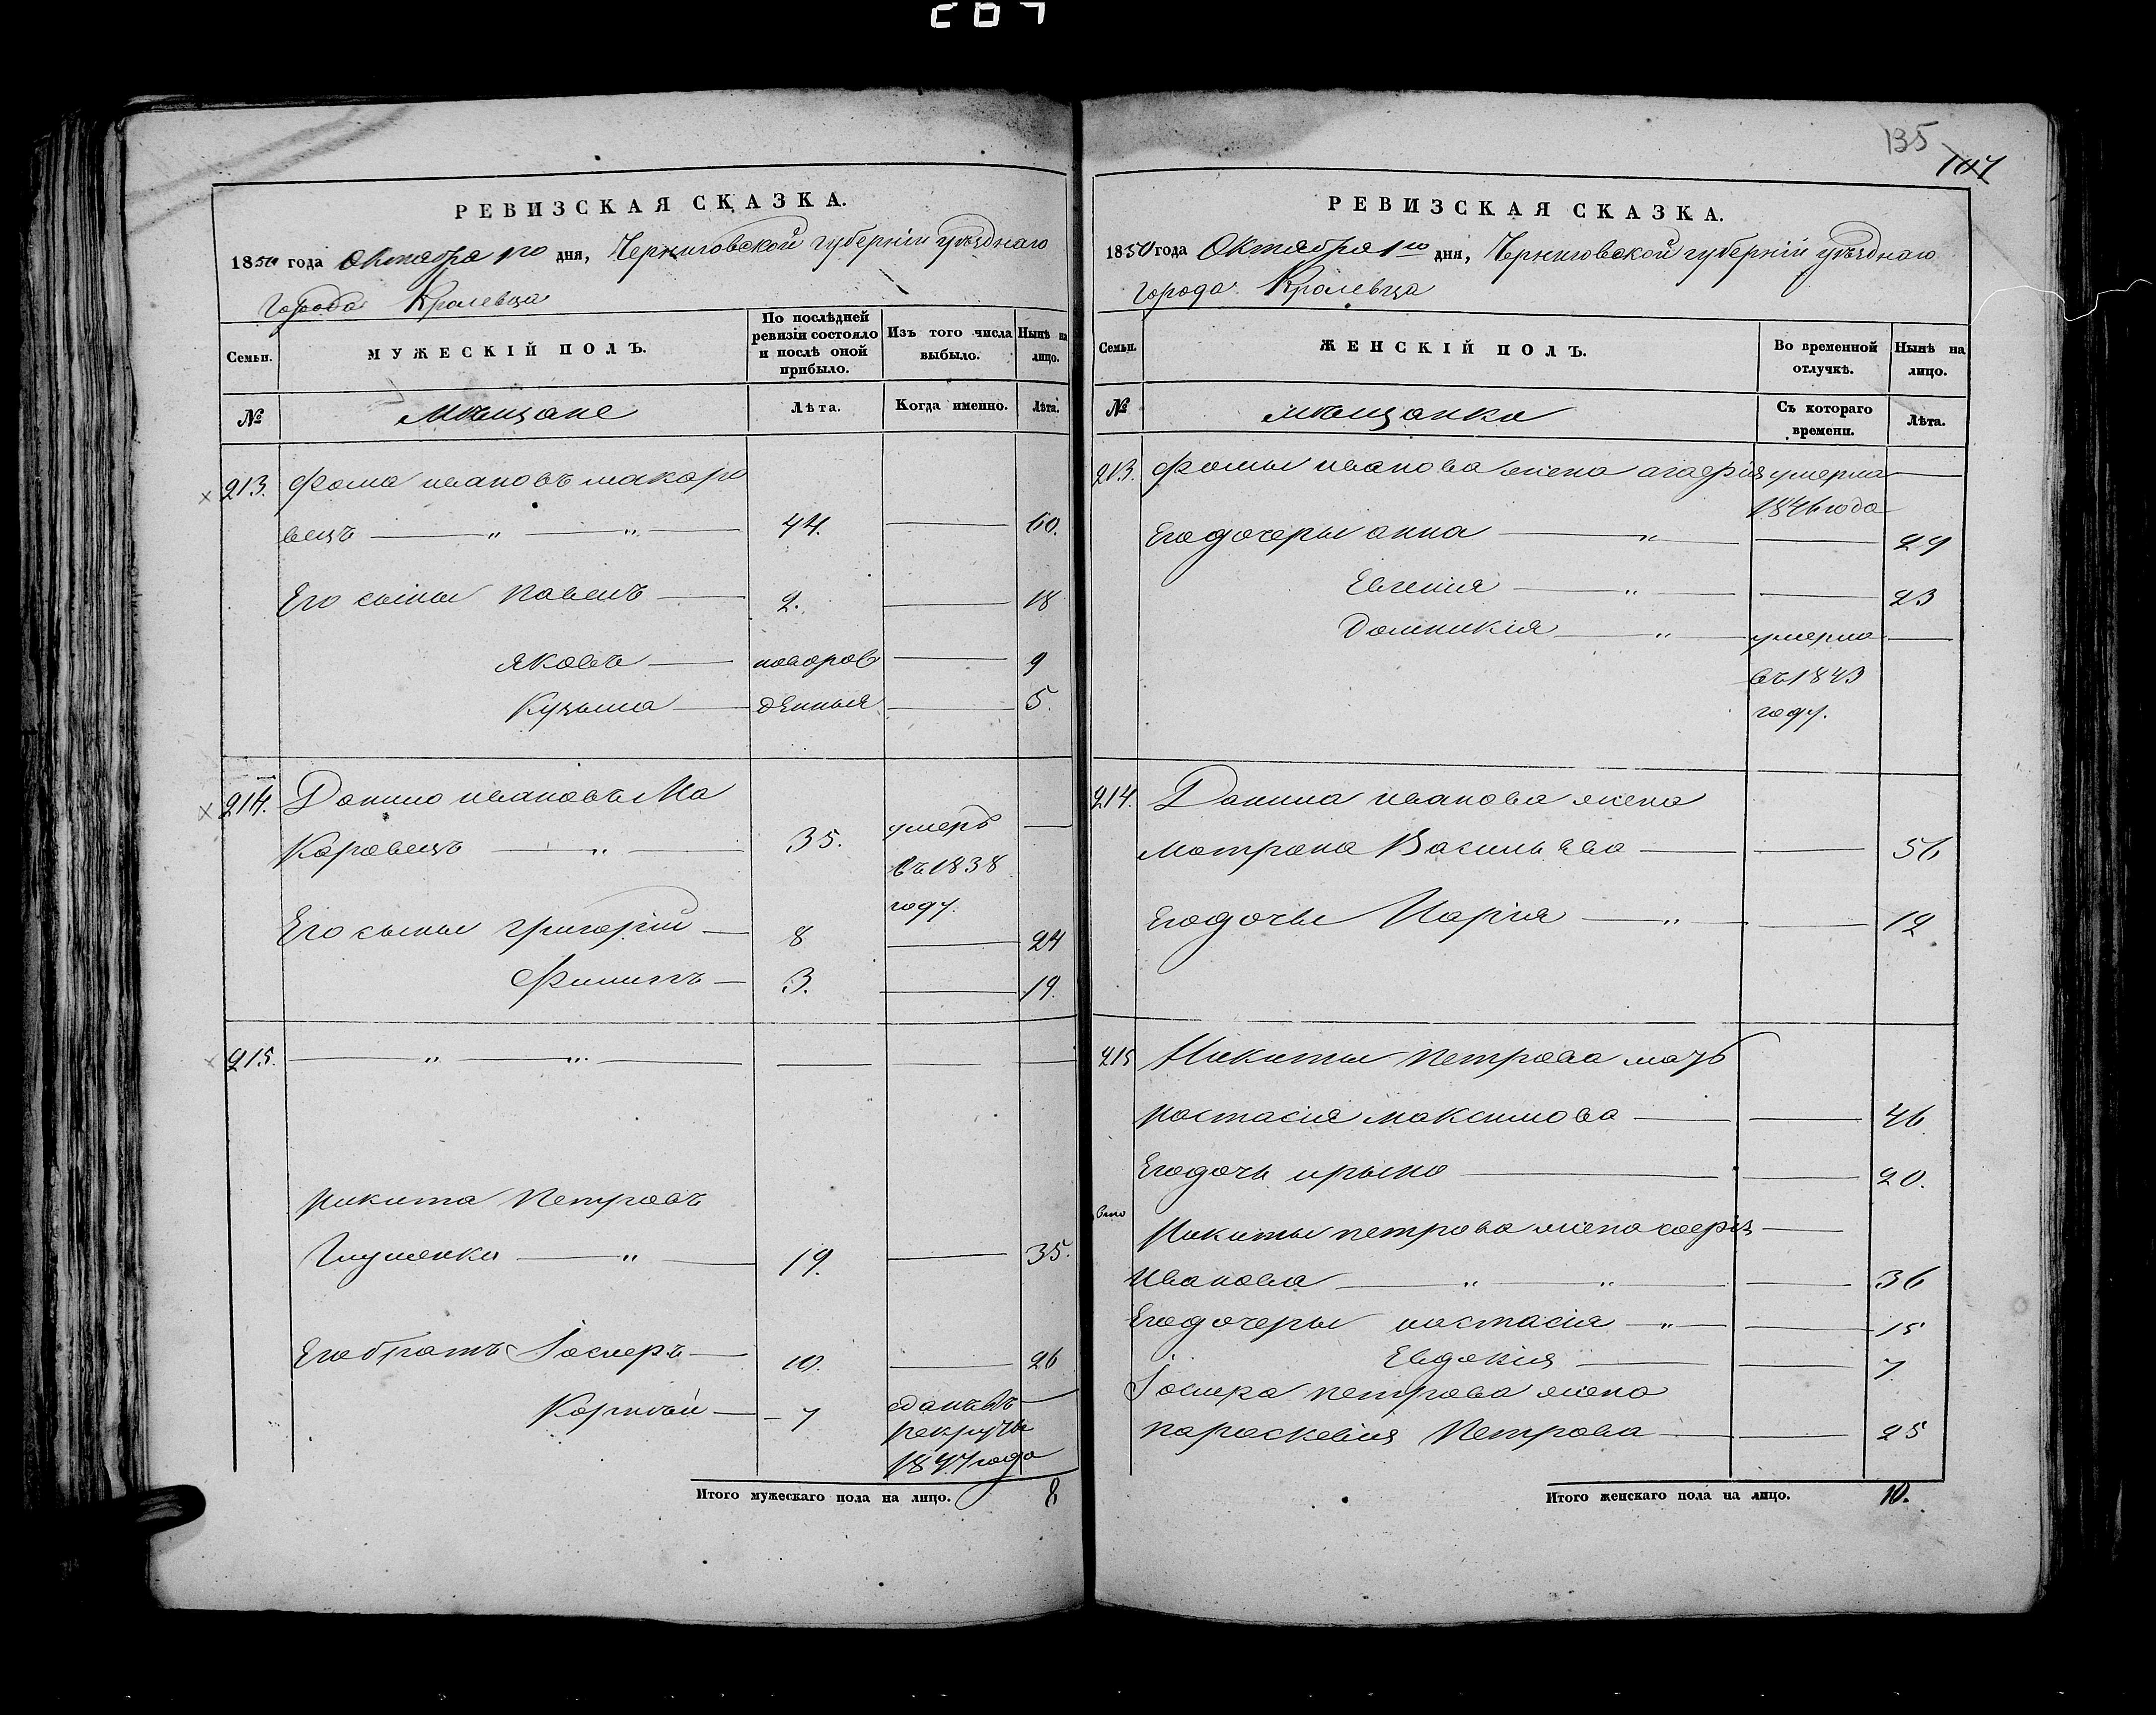 135
107
РЕВИЗСКАЯ СКАЗКА.
1850 года Октября 1го дня, Черниговской губернiи уѣзднаго
города Кролевца
Семьи.
МУЖЕСКІЙ ПОЛЪ.
По послѣдней ревизіи состояло и послѣ оной прибыло.
Изъ того числа выбыло.
Нынѣ на лицо.
№
Мѣщане
Лѣта.
Когда именно.
Лѣта.
213. Фома ивановъ макаро
вецъ — „ — „ — 44. — 60.
Его сыны павелъ — 2. — 18
яковъ — новорож — 9
Кузьма — денныя — 5.
214. Данило ивановъ Ма
каровецъ — „ — 35. умеръ —
въ 1838
году.
Его сыны григорiй — 8 — 24
Филипъ — 3. — 19.
215. — „ — „ —
Никита Петровъ
— „ — 19. — 35.
Его братъ Іосифъ — 10. — 26
— 7 сданъ въ —
рекруты
1847 года
Итого мужескаго пола на лицо. 8
РЕВИЗСКАЯ СКАЗКА.
1850 года Октября 1го дня, Черниговской губернiй уѣзднаго
города Кролевца
Семьи.
ЖЕНСКІЙ ПОЛЪ.
Во временной отлучкѣ.
Нынѣ на лицо.
№
мѣщанки
Съ котораго времени.
Лѣта.
213. Фомы иванова жена агафiя умерла —
1846 года
Его дочеры анна — „ — 29
Евгенiя — „ — 23
Домникiя — „ — умерла —
въ 1843
году.
214. Данила иванова жена
матрона Васильева — 56
Его дочь Марiя — „ — 12
215 Никиты петрова мать
настасiя максимова — 46
Его дочь ирына — 20.
Никиты петрова жена софiя —
Иванова — „ — „ — 36
Его дочеры настасiя — „ — 15
Евдокiя — 7
Іосифа петрова жена
параскевiя Петрова — 25
Итого женскаго пола на лицо. 10.